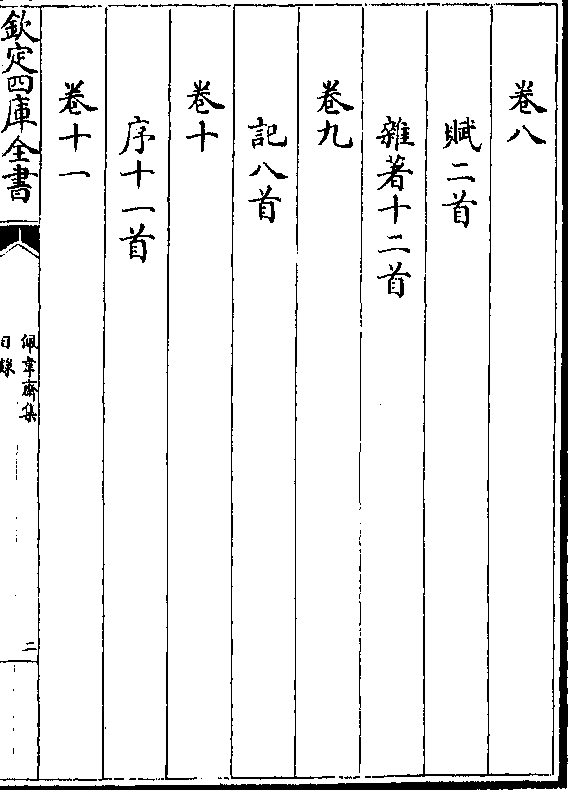 卷八
賦二首
雜著十二首
卷九
記八首
卷十
序十一首
卷十一
欽定四庫全書
佩韋齋集
目錄
二